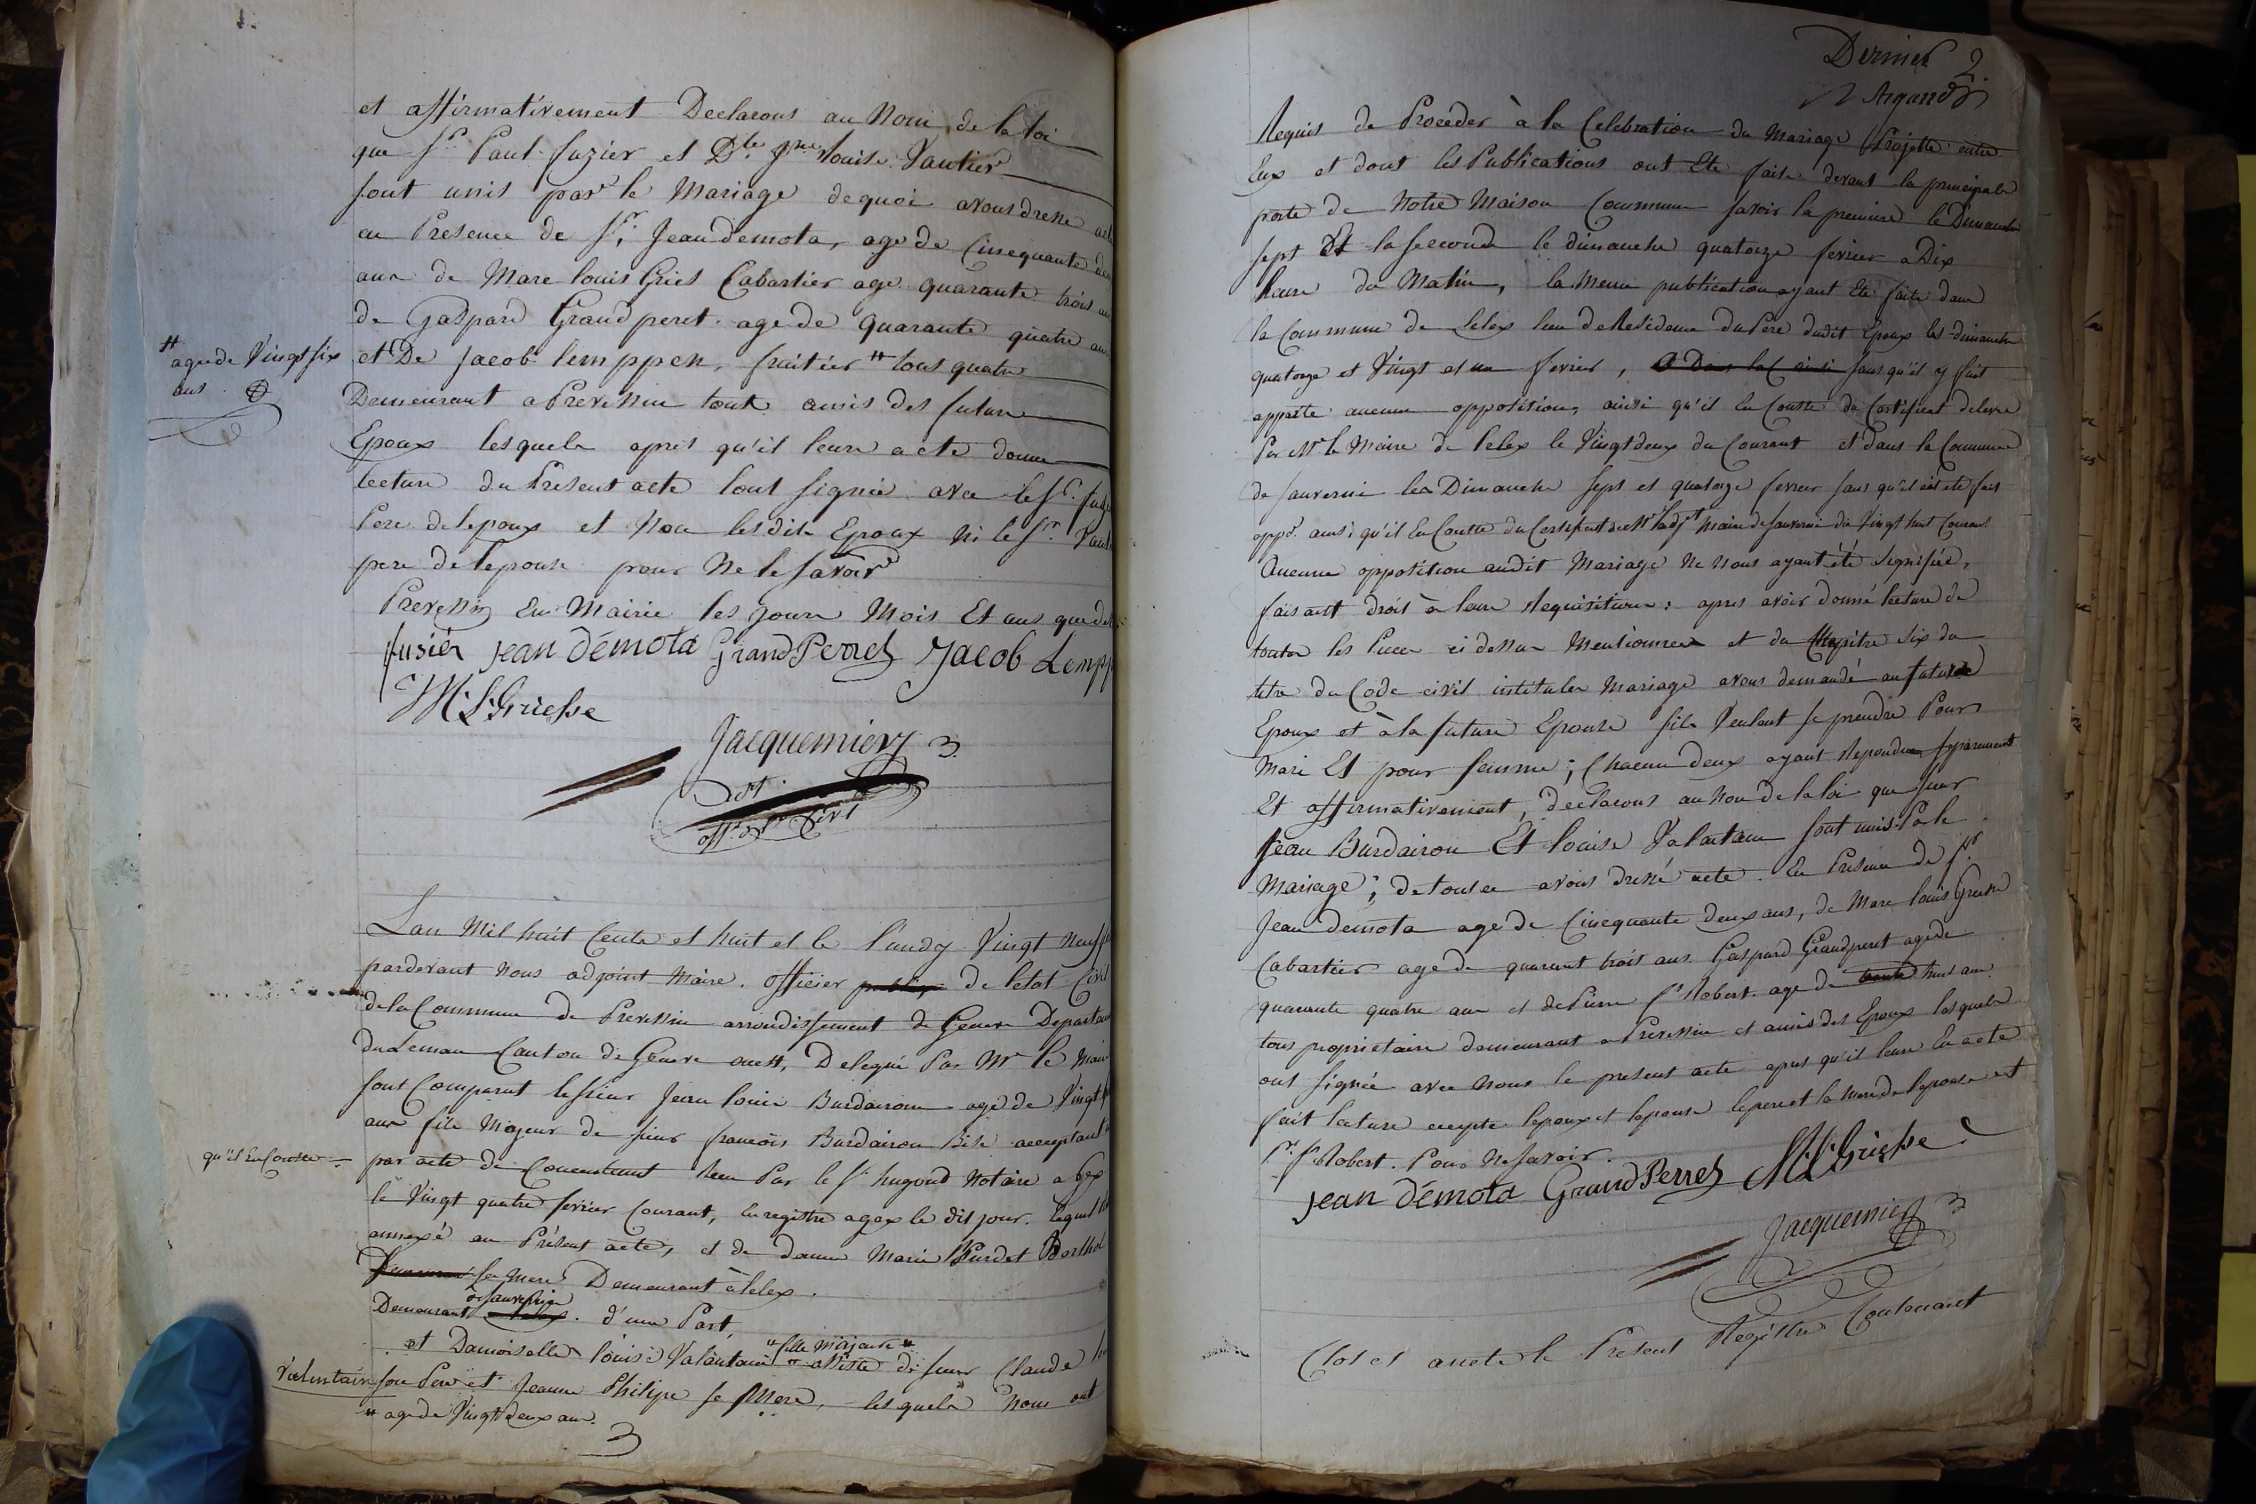 et affirmativement Declarons au Nom de la loi
que Sr Paul fuzier et Dlle Jne louise Vautier
sont unis par le Mariage de quoi avons dresse acte
en Presence de Sr. Jean demota, age de Cinequante deux
ans de Marc louis Gries Cabartier age quarante trois ans
de Gaspard Grand peret age de quarante quatre ans
et De Jacob lemppen, fruitier # tous quatre
# age de Vingt six
ans
Demeurant a Prevessin touts amis des futurs
Epoux lesquels apres qu'il leure a ete donne
lecture du Présent acte l'ont signée avec le Sr. fuzier
Pere de lepoux et Non lesdits Epoux ni le Sr. Vautier
pere de lepouse pour Ne le savoir
Prevessin En Mairie les jours Mois Et ans que dessus
fusiér Jean Démota GrandPerret Jacob Lempp
M L Griesse
Jacquemier
adjt.
offr. de l'. Civil
Lan Mil huit Cents et huit et le Lundy Vingt Neuf
pardevant Nous adjoint Maire. officier public de letat Civil
de la Commune de Prevessin arrondissement de Geneve Departement
du Leman Canton de Geneve ouest, Delegué Par Mr le Maire
sont Comparut le sieur Jean louis Burdairon agé de Vingt
ans fils Majeur de sieur francois Burdairon Bite acceptant
qu'il En Conste
par acte de Consentement Recu Par le Sr hugond Notaire a Gex
le Vingt quatre fevrier Courant, Enregistre a gex le dit jour. lequel
annexé au Présent acte, et de dame Marie Burdet Berthol
sa Mere Demeurant à lelex.
Demeurant a sauvernier d'une Part,
et Damoiselle louise Valentain " fille Majeure " assiste de sieur Claude
Valentain son Pere et Jeanne Philipe sa Mere, lesquels Nous ont
# age de Vingt deux ans.
3
Dernier 2
Argand
Requis de Proceder à la Celebration du Mariage Projetté entre
Eux et dont les Publications ont Ete faite devant la principale
porte de Notre Maison Commune savoir la premiere le Dimanche
sept Et la seconde le dimanche quatorze fevrier a Dix
heure du Matin, la Meme publication ayant Ete faite dans
la Commune de Lelex lieu de Residence du Pere dudit Epoux les dimanche
quatorze et Vingt et un fevrier, sans qu'il y soit
apporte aucune opposition, ainsi qu'il En Conste du Certificat delivre
Par Mr le Maire de lelex le Vingt deux du Courant et dans la Commune
de sauvernie les Dimanche sept et quatorze fevrier sans qu'il eut ete fait
oppon. ainsi qu'il En Conste du Certificat de Mr l'adjt Maire de Sauvernie du Vingt huit Courant
Aucune opposition audit Mariage Ne Nous ayant été signifiée,
faisant droit à leur Requisition; apres avoir donné lecture de
toutes les Pieces ci dessus Mentionnees et du Chapitre Six du
titre du Code civil intitulé Mariage avons demandé au futur
Epoux et à la future Epouse sils Veulent se prendre Pour
Mari Et pour femme; Chacun deux ayant Repondu separement
Et affirmativement, declarons au Nom de la loi que sieur
Jean Burdairon Et louise Valantain sont unis Par le
Mariage; de tous ce avons dressé acte. En Presence de Sr
Jean demota age de Cinequante deux ans, de Marc louis Griesse
Cabartier age de quarante trois ans. Gaspard Grandperet age de
quarante quatre ans et de Pierre fs Robert. age de trente huit ans.
tous proprietaire demeurant a Prevessin et amis des Epoux lesquels
ont signée avec Nous le present acte apres qu'il leure En a ete
fait lecture excepte lepoux et lepouse le pere et la Mere de lepouse et
Pre. fs Robert. Pour Ne savoir.
Jean Démota GrandPerret M L Griesse
Jacquemier
Clos et arrete le Présent Registre Contenant